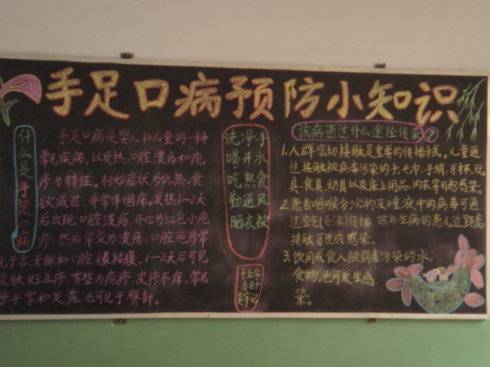 手足口病预防小知识
什么是手足口病
手足口病是婴儿和儿童的一种
常见疾病，以发热、口腔溃疡和疱
疹为特征。初始症状为低热、食
欲减退、并常伴咽痛。发热1-2天
后出现口腔溃疡，开始为红色小疱
疹，然后常变为溃疡。口腔疱疹常
见于舌、牙龈和口腔颊黏膜。1-2天后可见
皮肤斑丘疹，有些为疱疹，皮疹不痒，常见
于手掌和足底，也可见于臀部。
洗净手
喝开水
吃熟食
勤通风
晒衣被
该病通过什么途径传染？
1.人群密切接触是重要的传播方式。儿童通
过接触被病毒污染的手、毛巾、手绢、牙杯、玩
具、食具、奶具以及床上用品、内衣等引起感染。
2.患者咽喉分泌物及唾液中的病毒可通
过空气(飞沫)传播，故与生病的患儿近距离
接触可造成感染。
3.饮用或食入被病毒污染的水、
食物，也可发生感
染。